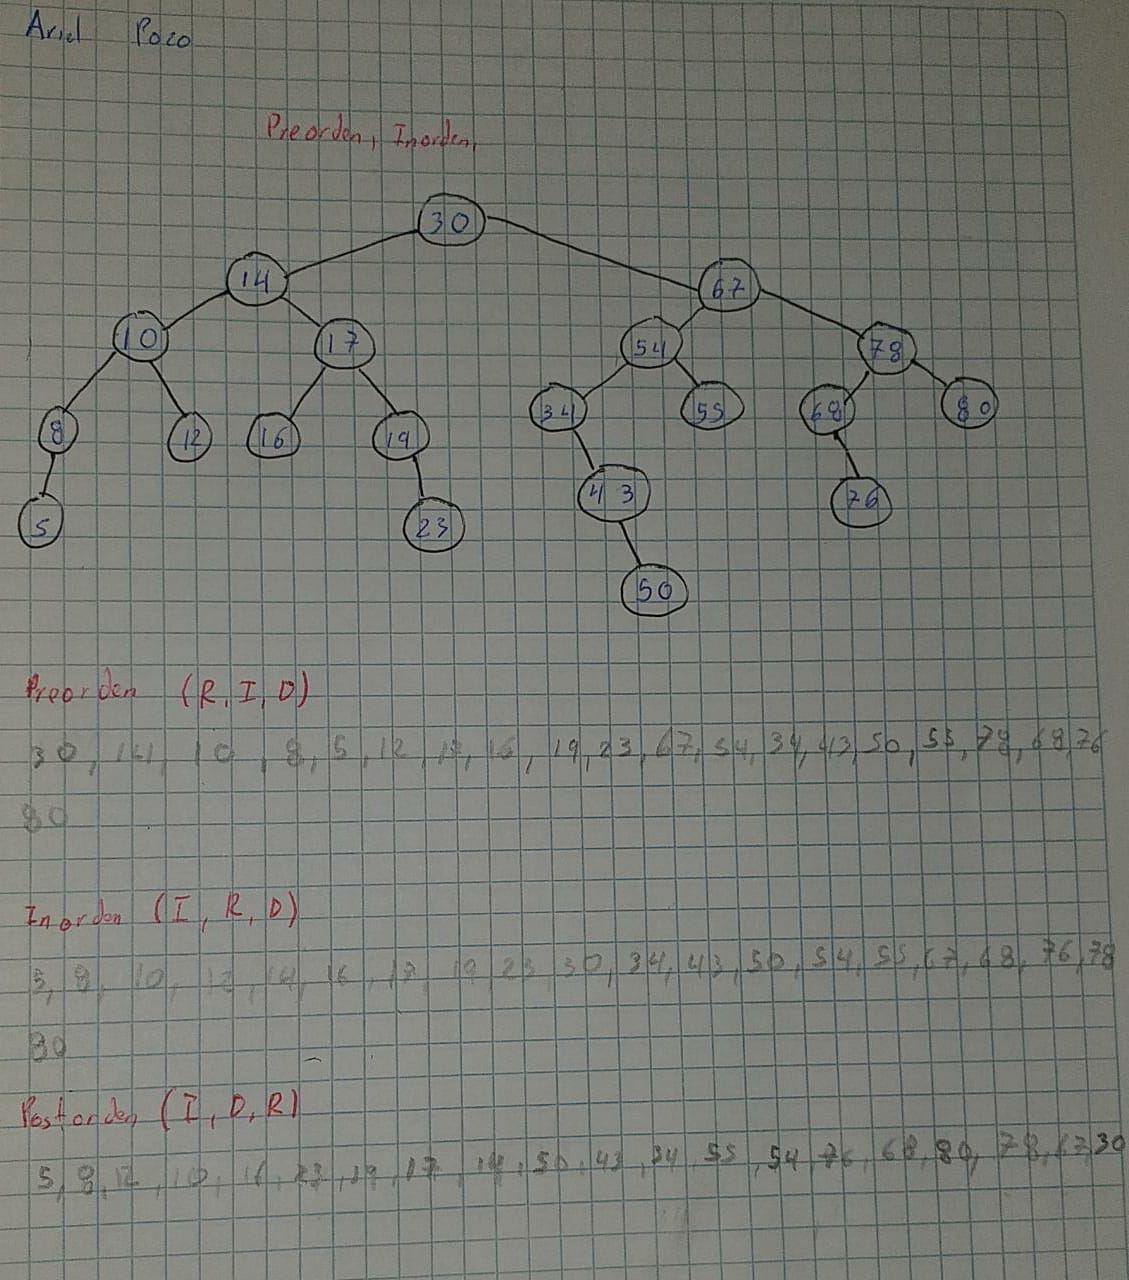 Ariel Poco
Preorden, Inorden,
30
14 67
10 17 54 78
8 12 16 19 34 55 68 80
5 23 43 76
50
Preorden (R, I, D)
30, 14, 10, 8, 5, 12, 17, 16, 19, 23, 67, 54, 34, 43, 50, 55, 78, 68, 76
80
Inorden (I, R, D)
5, 8, 10, 12, 14, 16, 17, 19, 23, 30, 34, 43, 50, 54, 55, 67, 68, 76, 78
80
Postorden (I, D, R)
5, 8, 12, 10, 16, 23, 19, 17, 14, 50, 43, 34, 55, 54, 76, 68, 80, 78, 67, 30